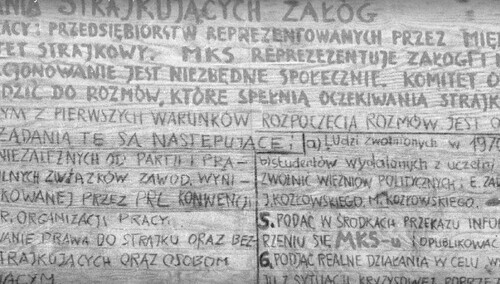 STRAJKUJĄCYCH ZAŁÓG
ACY I PRZEDSIĘBIORSTW REPREZENTOWANYCH PRZEZ MIĘ
ET STRAJKOWY. MKS REPREZENTUJE ZAŁOGI I
CJONOWANIE JEST NIEZBĘDNE SPOŁECZNIE. KOMITET
DZIĆ DO ROZMÓW, KTÓRE SPEŁNIĄ OCZEKIWANIA STRAJK
YM Z PIERWSZYCH WARUNKÓW ROZPOCZĘCIA ROZMÓW JEST
ŻĄDANIA TE SĄ NASTĘPUJĄCE:
NIEZALEŻNYCH OD PARTII I PRA-
LNYCH ZWIĄZKÓW ZAWOD. WYNI-
KOWANEJ PRZEZ PRL KONWENCJI
R. ORGANIZACJI PRACY.
WANIE PRAWA DO STRAJKU ORAZ BEZ-
TRAJKUJĄCYCH ORAZ OSOBOM
JĄCYM
a) Ludzi zwolnionych w 1970
b) studentów wydalonych z uczelni
ZWOLNIĆ WIĘŹNIÓW POLITYCZNYCH: E. ZA
J. KOZŁOWSKIEGO, M. KOZŁOWSKIEGO.
5. PODAĆ W ŚRODKACH PRZEKAZU INFOR
RZENIU SIĘ MKS-u I OPUBLIKOWAĆ
6. PODJĄĆ REALNE DZIAŁANIA W CELU W
JU Z SYTUACJI KRYZYSOWEJ POPRZEZ